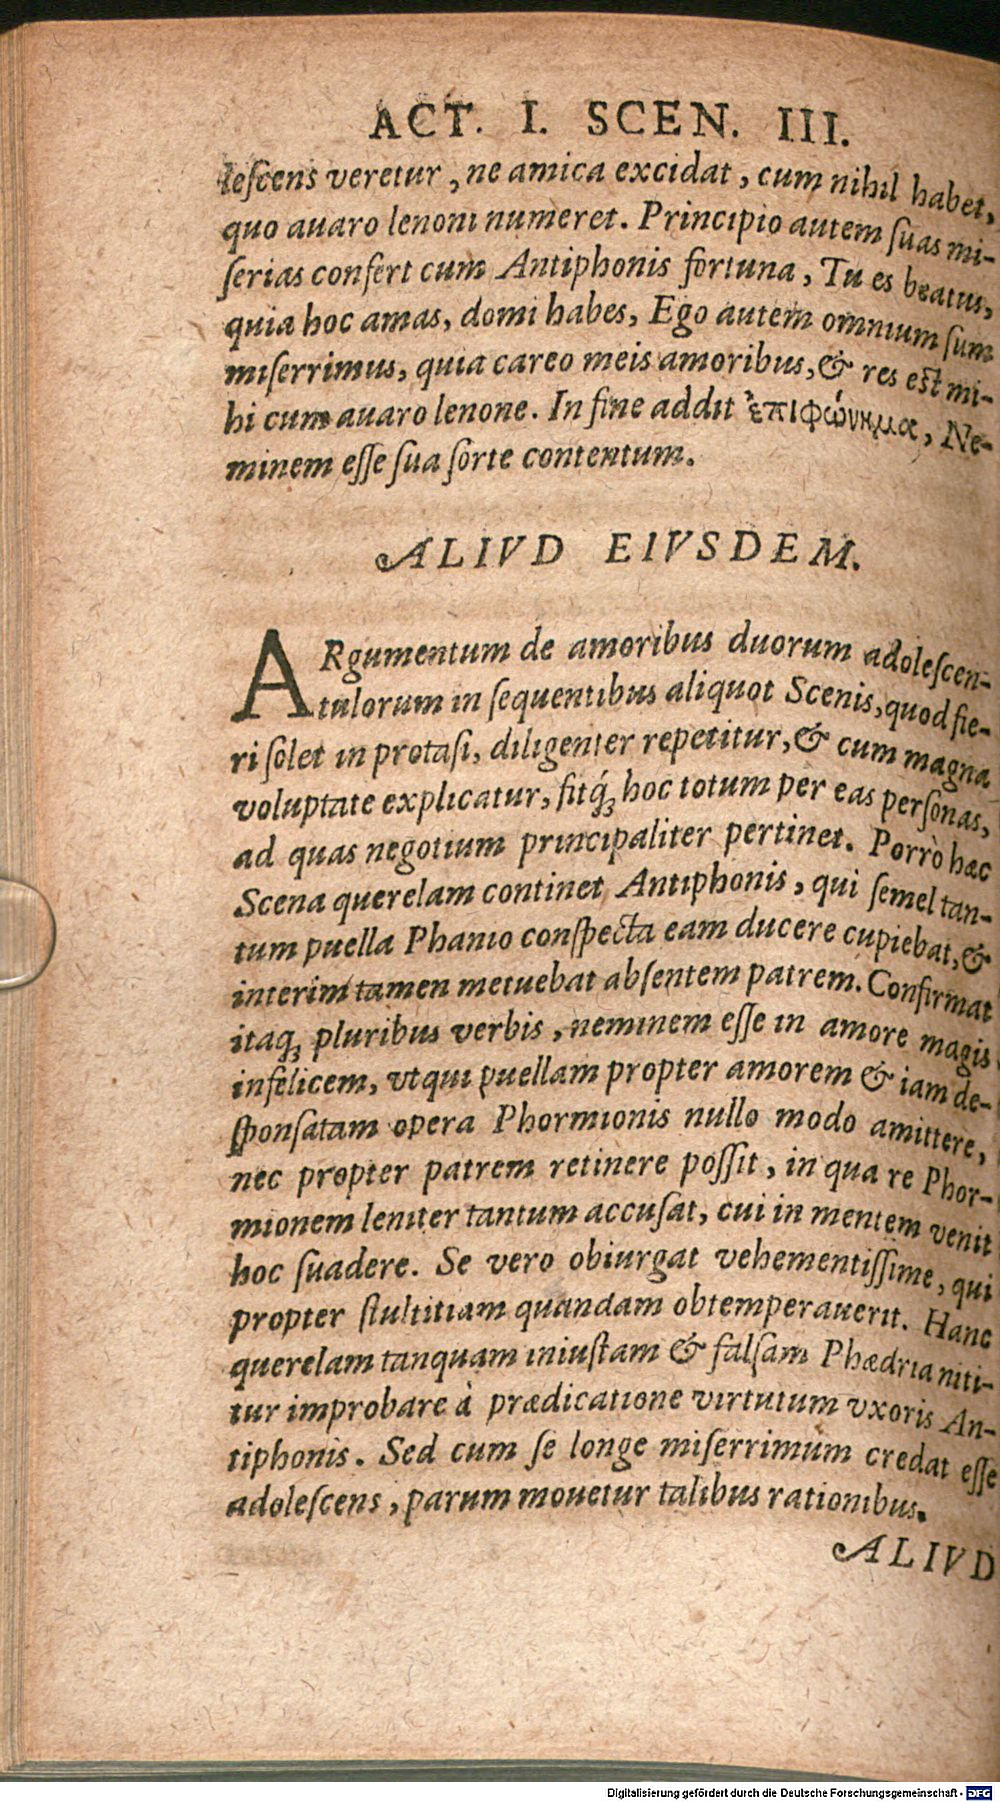 ACT. I. SCEN. III.
leſcens veretur, ne amica excidat, cum nihil habet,
quo auaro lenoni numeret. Principio autem ſuas mi-
ſerias confert cum Antiphonis fortuna, Tu es beatus,
quia hoc amas, domi habes, Ego autem omnium ſum
miſerrimus, quia careo meis amoribus, & res eſt mi-
hi cum auaro lenone. In fine addit ἐπιφώνημα, Ne-
minem eſſe ſua ſorte contentum.
ALIVD EIVSDEM.
ARgumentum de amoribus duorum adoleſcen-
tulorum in ſequentibus aliquot Scenis, quod fie-
ri ſolet in protaſi, diligenter repetitur, & cum magna
voluptate explicatur, fitq́ꝫ hoc totum per eas perſonas,
ad quas negotium principaliter pertinet. Porrò hæc
Scena querelam continet Antiphonis, qui ſemel tan-
tum puella Phanio conſpecta eam ducere cupiebat, &
interim tamen metuebat abſentem patrem. Confirmat
itaqꝫ pluribus verbis, neminem eſſe in amore magis
infelicem, vt qui puellam propter amorem & iam de-
ſponſatam opera Phormionis nullo modo amittere,
nec propter patrem retinere poſſit, in qua re Phor-
mionem leniter tantum accuſat, cui in mentem venit
hoc ſuadere. Se vero obiurgat vehementiſſime, qui
propter ſtultitiam quandam obtemperauerit. Hanc
querelam tanquam iniuſtam & falſam Phædria niti-
tur improbare à prædicatione virtutum vxoris An-
tiphonis. Sed cum ſe longe miſerrimum credat eſſe
adoleſcens, parum mouetur talibus rationibus.
ALIVD
Digitalisierung gefördert durch die Deutsche Forschungsgemeinschaft - DFG